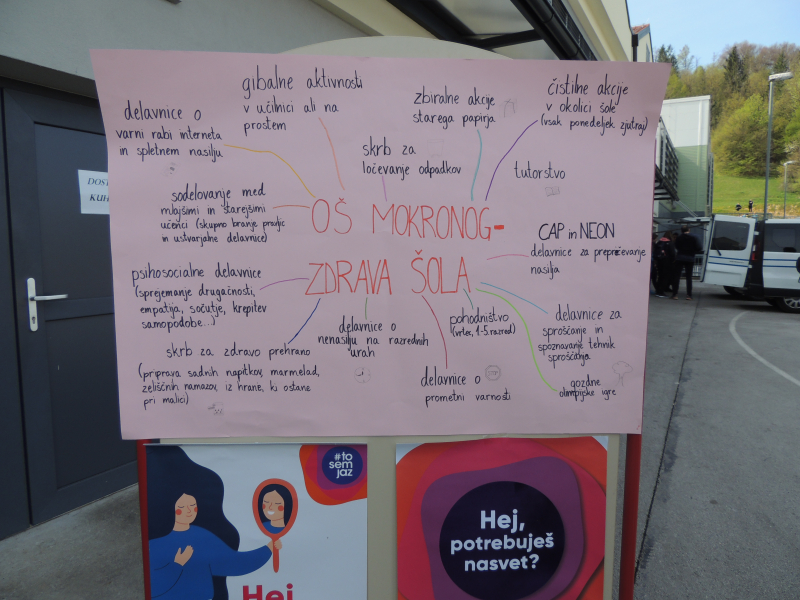 gibalne aktivnosti
v učilnici ali na
prostem
zbiralne akcije
starega papirja
čistilne akcije
v okolici šole
(vsak ponedeljek zjutraj)
delavnice o
varni rabi interneta
in spletnem nasilju
skrb za
ločevanje odpadkov
tutorstvo
DOST
KUH
sodelovanje med
mlajšimi in starejšimi
učenci (skupno branje pravljic
in ustvarjalne delavnice)
OŠ MOKRONOG-
ZDRAVA ŠOLA
CAP in NEON
delavnice za preprečevanje
nasilja
psihosocialne delavnice
(sprejemanje drugačnosti,
empatija, sočutje, krepitev
samopodobe...)
delavnice o
nenasilju na razrednih
urah
pohodništvo
(vrtec, 1.-5. razred)
delavnice za
sproščanje in
spoznavanje tehnik
sproščanja
skrb za zdravo prehrano
(priprava sadnih napitkov, marmelad,
zeliščnih namazov, iz hrane, ki ostane
pri malici)
delavnice o
prometni varnosti
gozdne
olimpijske igre
#to
sem
jaz
Hej
Hej,
potrebuješ
nasvet?